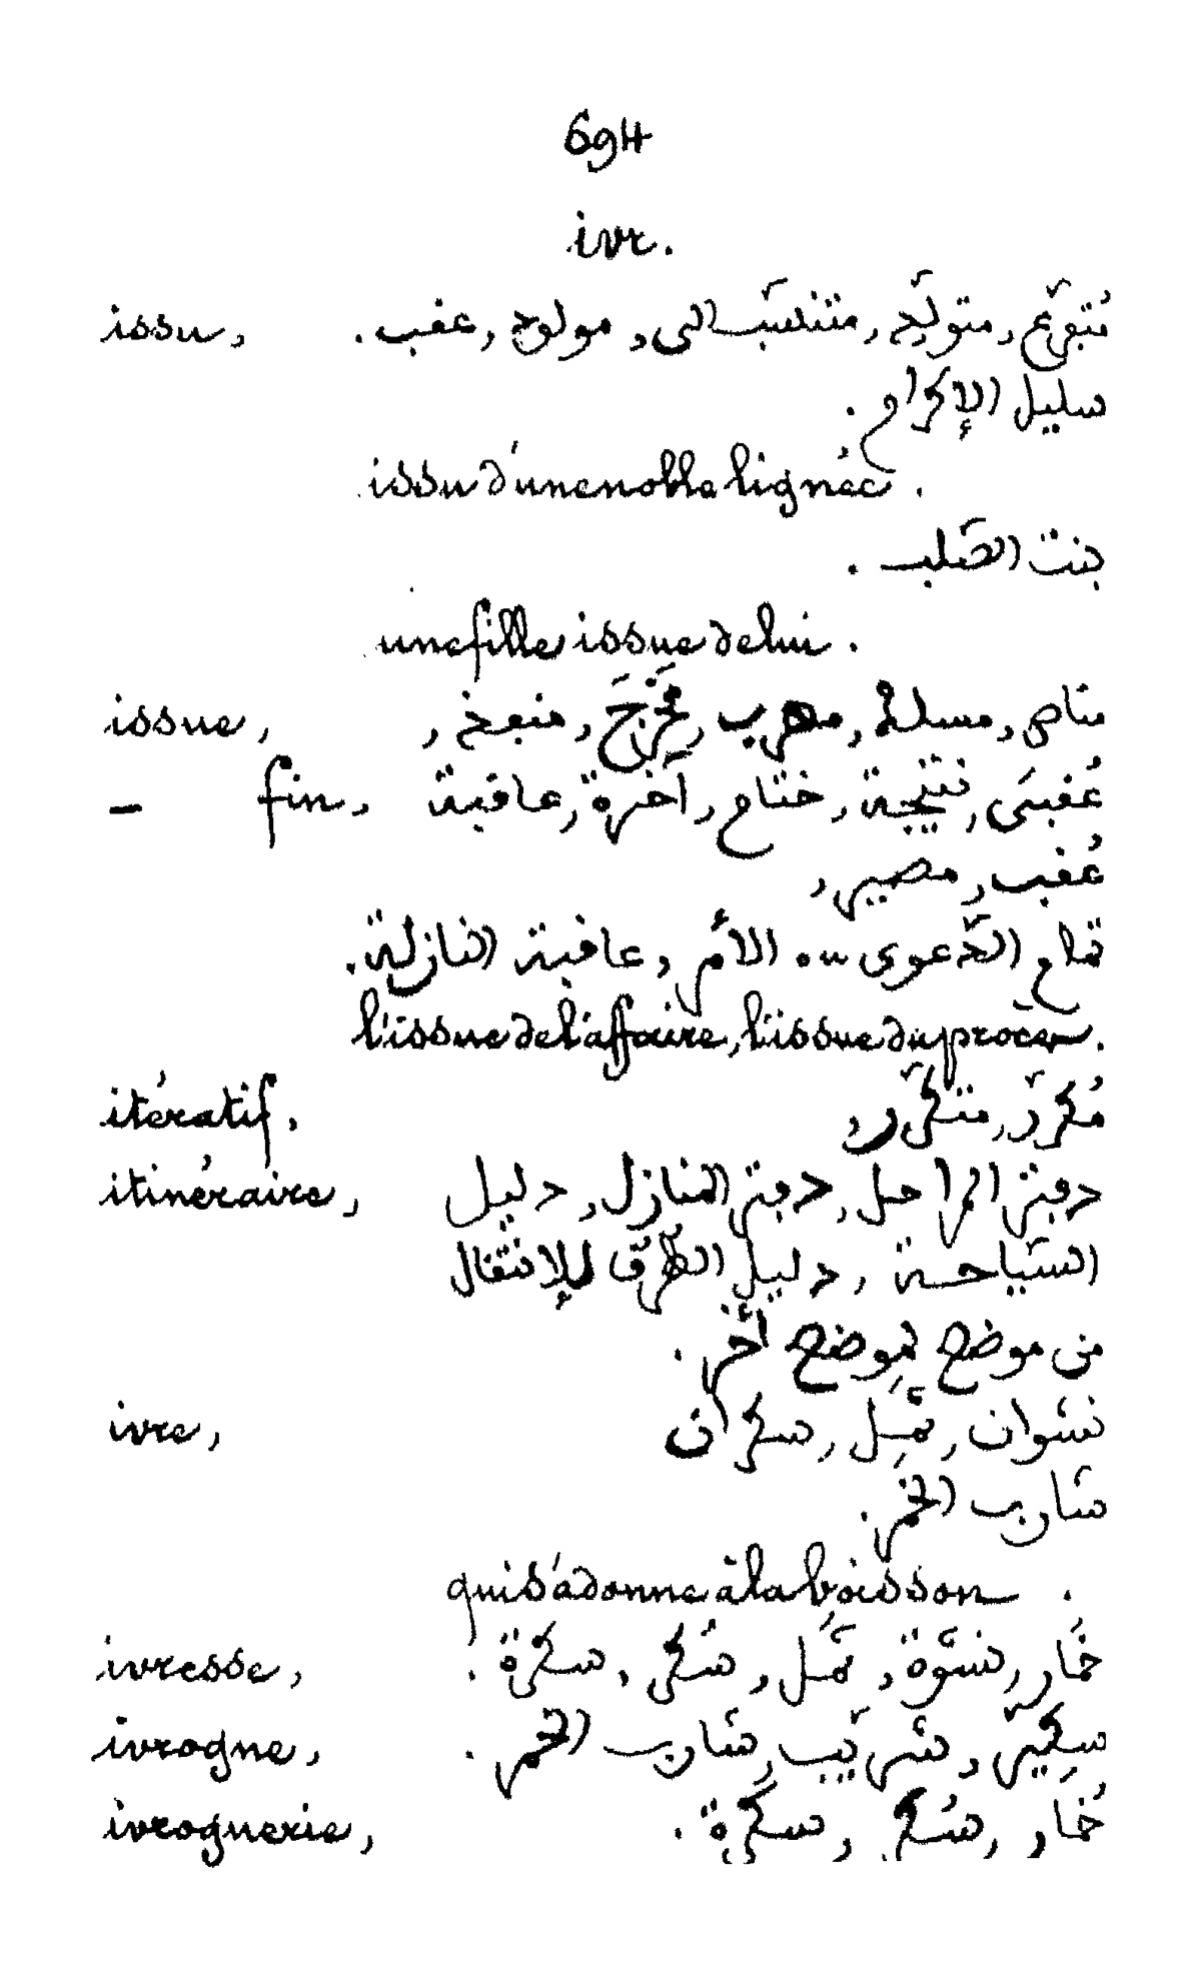 694
ivr.
issu, مُتفرّع, متولّد, متنسّب الى, مولود, عقب.
سليل الإكرام.
issu d'une noble lignée.
بنت الصّلب.
une fille issue de lui.
issue, مناص, مسلك, مهرب, مَخْرَج, منفذ,
— fin, عُقبَى, نتيجة, ختام, آخرة, عاقبة
عُقب, مصير,
تمام الدّعوى س ه الأمر, عاقبة النازلة.
l'issue de l'affaire, l'issue du procès.
itératif, مُكرّر, متكرّر,
itinéraire, دفتر المراحل, دفتر المنازل, دليل
السّياحة, دليل الطّرق للإنتقال
من موضع لموضع أخر.
ivre, نشوان, ثَمِل, سكران
شارب الخمر.
qui s'adonne à la boisson.
ivresse, خُمار, نشوة, ثَمَل, سُكر, سكرة.
ivrogne, سِكّير, شرّيب, شارب الخمر.
ivrognerie, خُمار, سُكر, سكرة.